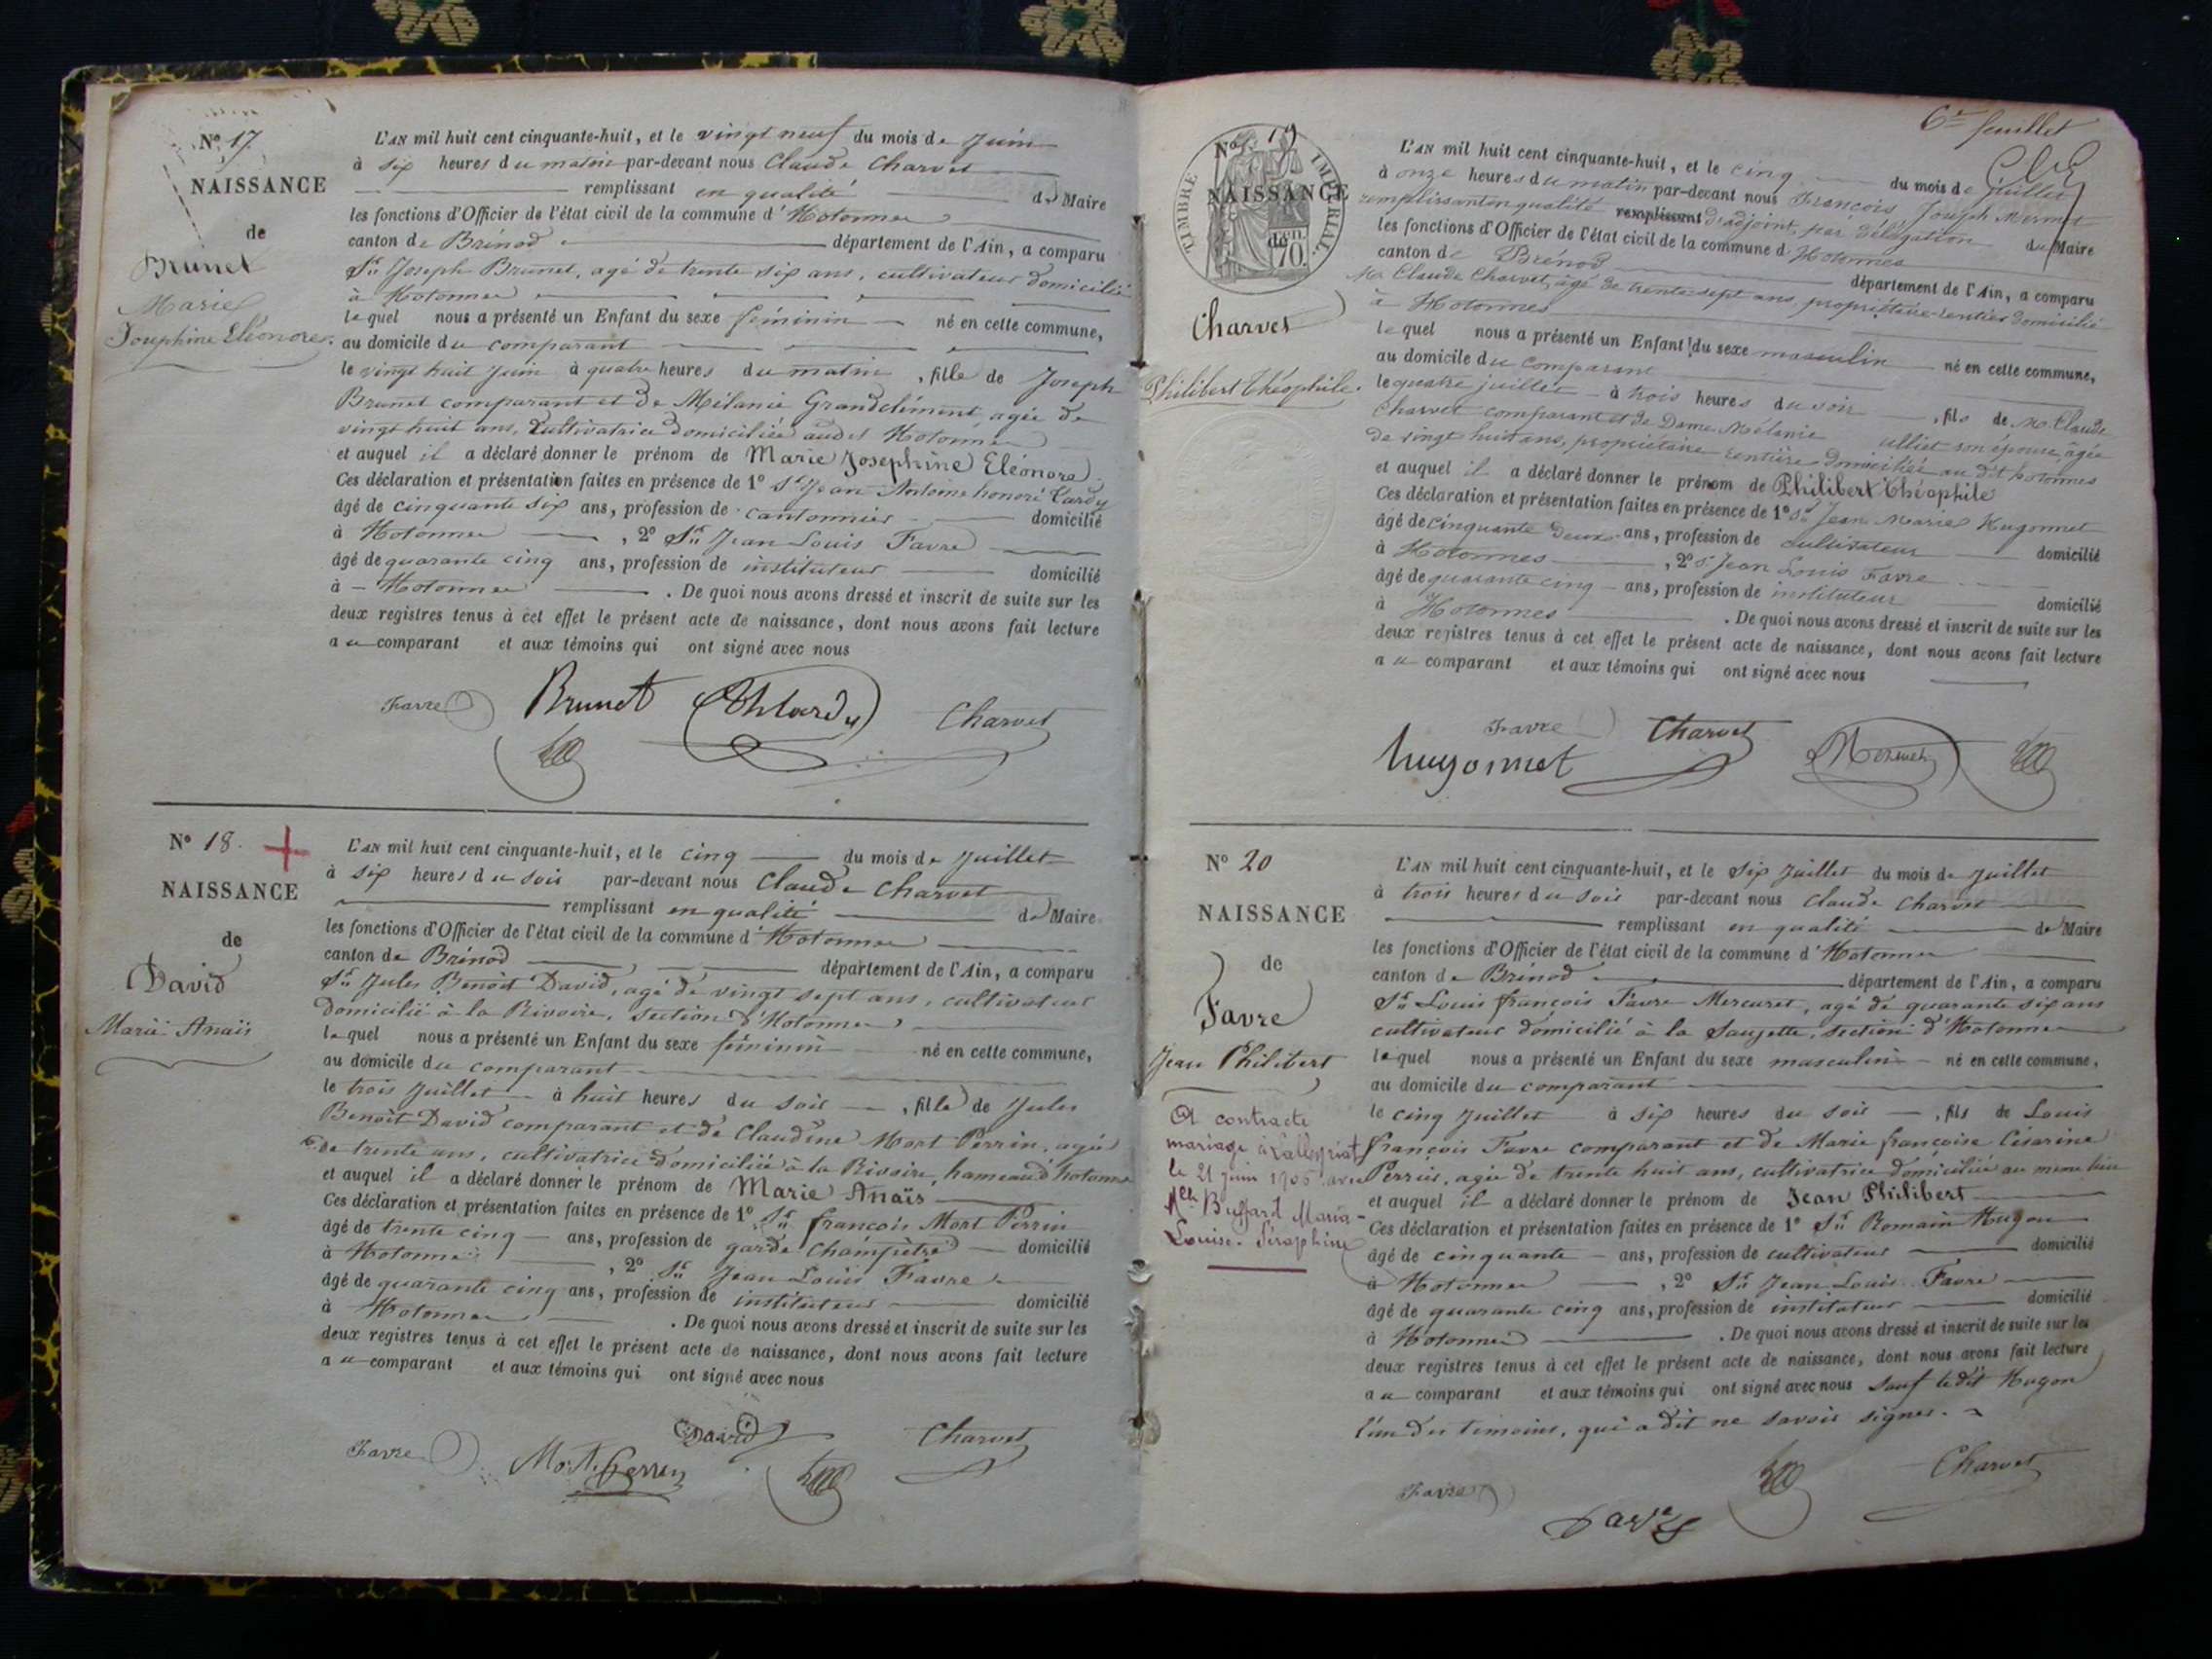 N° 17
NAISSANCE
de
Brunet
Marie
Josephine Eléonore.
L'AN mil huit cent cinquante-huit, et le vingt neuf du mois de Juin
à six heures du matin par-devant nous Claude Charvet
remplissant en qualité de Maire
les fonctions d'Officier de l'état civil de la commune d'Hotonnes
canton de Brénod département de l'Ain, a comparu
Sr Joseph Brunet, agé de trente six ans, cultivateur domicilié
à Hotonnes
lequel nous a présenté un Enfant du sexe féminin né en cette commune,
au domicile du comparant
le vingt huit Juin à quatre heures du matin, fille de Joseph
Brunet comparant et de Mélanie Grandclément, agée de
vingt huit ans, Cultivatrice domiciliée audit Hotonnes
et auquel il a déclaré donner le prénom de Marie Josephine Eléonore.
Ces déclaration et présentation faites en présence de 1° Sr Jean Antoine honoré Cardy
âgé de cinquante six ans, profession de cantonnier domicilié
à Hotonnes, 2° Sr Jean Louis Favre
âgé de quarante cinq ans, profession de instituteur domicilié
à Hotonnes. De quoi nous avons dressé et inscrit de suite sur les
deux registres tenus à cet effet le présent acte de naissance, dont nous avons fait lecture
au comparant et aux témoins qui ont signé avec nous
Favre Brunet Charvet
N° 18.
NAISSANCE
de
David
Marie Anaïs
L'AN mil huit cent cinquante-huit, et le cinq du mois de Juillet
à six heures du soir par-devant nous Claude Charvet
remplissant en qualité de Maire
les fonctions d'Officier de l'état civil de la commune d'Hotonnes
canton de Brénod département de l'Ain, a comparu
Sr Jules Benoit David, agé de vingt sept ans, cultivateur
domicilié à la Rivoire, section d'Hotonnes
lequel nous a présenté un Enfant du sexe féminin né en cette commune,
au domicile du comparant
le trois Juillet à huit heures du soir, fille de Jules
Benoit David comparant et de Claudine Mort Perrin, agée
de trente ans, cultivatrice domiciliée à la Rivoire, hameau d'hotonnes
et auquel il a déclaré donner le prénom de Marie Anaïs
Ces déclaration et présentation faites en présence de 1° Sr françois Mort Perrin
âgé de trente cinq ans, profession de garde champêtre domicilié
à Hotonnes, 2° Sr Jean Louis Favre
âgé de quarante cinq ans, profession de instituteur domicilié
à Hotonnes. De quoi nous avons dressé et inscrit de suite sur les
deux registres tenus à cet effet le présent acte de naissance, dont nous avons fait lecture
au comparant et aux témoins qui ont signé avec nous
David
Favre Mort Perrin Charvet
6e feuillet
N° 19
TIMBRE IMPÉRIAL
NAISSANCE
de
en.
70.
Charvet
Philibert Théophile.
L'AN mil huit cent cinquante-huit, et le cinq du mois de juillet
à onze heures du matin par-devant nous François Joseph Mermet
remplissant en qualité remplissant d'adjoint par délégation du Maire
les fonctions d'Officier de l'état civil de la commune d Hotonnes
canton de Brénod département de l'Ain, a comparu
Mr Claude Charvet, agé de trente-sept ans, propriétaire-rentier domicilié
à Hotonnes
lequel nous a présenté un Enfant du sexe masculin né en cette commune,
au domicile du comparant
le quatre juillet à trois heures du soir, fils de Mr Claude
Charvet comparant et de Dame Mélanie Alliet son épouse, âgée
de vingt huit ans, propriétaire rentière domiciliée au dit hotonnes
et auquel il a déclaré donner le prénom de Philibert Théophile
Ces déclaration et présentation faites en présence de 1° Sr Jean Marie Hugonnet
âgé de cinquante deux ans, profession de cultivateur domicilié
à Hotonnes, 2° Sr Jean Louis Favre
âgé de quarante cinq ans, profession de instituteur domicilié
à Hotonnes. De quoi nous avons dressé et inscrit de suite sur les
deux registres tenus à cet effet le présent acte de naissance, dont nous avons fait lecture
au comparant et aux témoins qui ont signé avec nous
Favre Charvet Mermet
hugonnet
N° 20
NAISSANCE
de
Favre
Jean Philibert
A contracté
mariage à Lalleyriat
le 21 juin 1905 avec
Melle Buffard Maria-
Louise-Séraphine
L'AN mil huit cent cinquante-huit, et le six Juillet du mois de Juillet
à trois heures du soir par-devant nous Claude Charvet
remplissant en qualité de Maire
les fonctions d'Officier de l'état civil de la commune d'Hotonnes
canton de Brénod département de l'Ain, a comparu
Sr Louis françois Favre Mercuret, agé de quarante six ans
cultivateur domicilié à la Saugette, section d'Hotonnes
lequel nous a présenté un Enfant du sexe masculin né en cette commune,
au domicile du comparant
le cinq Juillet à six heures du soir, fils de Louis
françois Favre comparant et de Marie françoise Césarine
Perrin, agée de trente huit ans, cultivatrice domiciliée au même lieu
et auquel il a déclaré donner le prénom de Jean Philibert
Ces déclaration et présentation faites en présence de 1° Sr Romain Hugon
âgé de cinquante ans, profession de cultivateur domicilié
à Hotonnes, 2° Sr Jean Louis Favre
âgé de quarante cinq ans, profession de instituteur domicilié
à Hotonnes. De quoi nous avons dressé et inscrit de suite sur les
deux registres tenus à cet effet le présent acte de naissance, dont nous avons fait lecture
au comparant et aux témoins qui ont signé avec nous sauf ledit Hugon
l'un des témoins, qui a dit ne savoir signer.
Favre Charvet